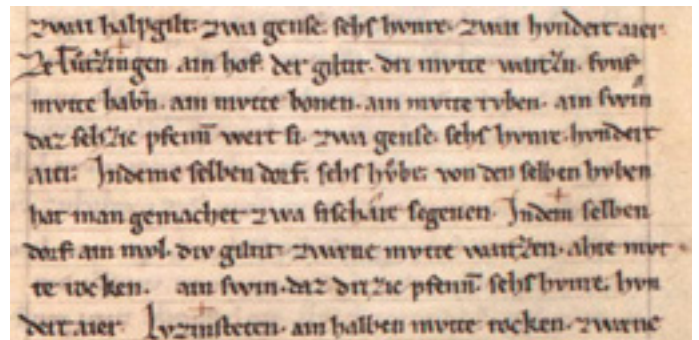 zwai halpgilt. zwa gense. sehs hvnre. zwai hvndert aier.
Ze Lv̊tzingen ain hof. der giltit. dri mvtte waitzn. funf
mvtte habn̄. ain mvtte bonen. ain mvtte rvben. ain swin
daz sehzic pfenn̄ wert si. zwa gense. sehs hvnre. hvndert
aier. Indeme selben dorf. sehs hv̊be. von den selben hvben
hat man gemachet zwa fischare segenen. Indem selben
dorf ain mvl. div giltit. zwene mvtte waitzen. ahte mvt
te rocken. ain swin. daz drizic pfenn̄. sehs hvnre. hvn
dert aier. Lvzinsteten. ain halben mvtte rocken. zwene